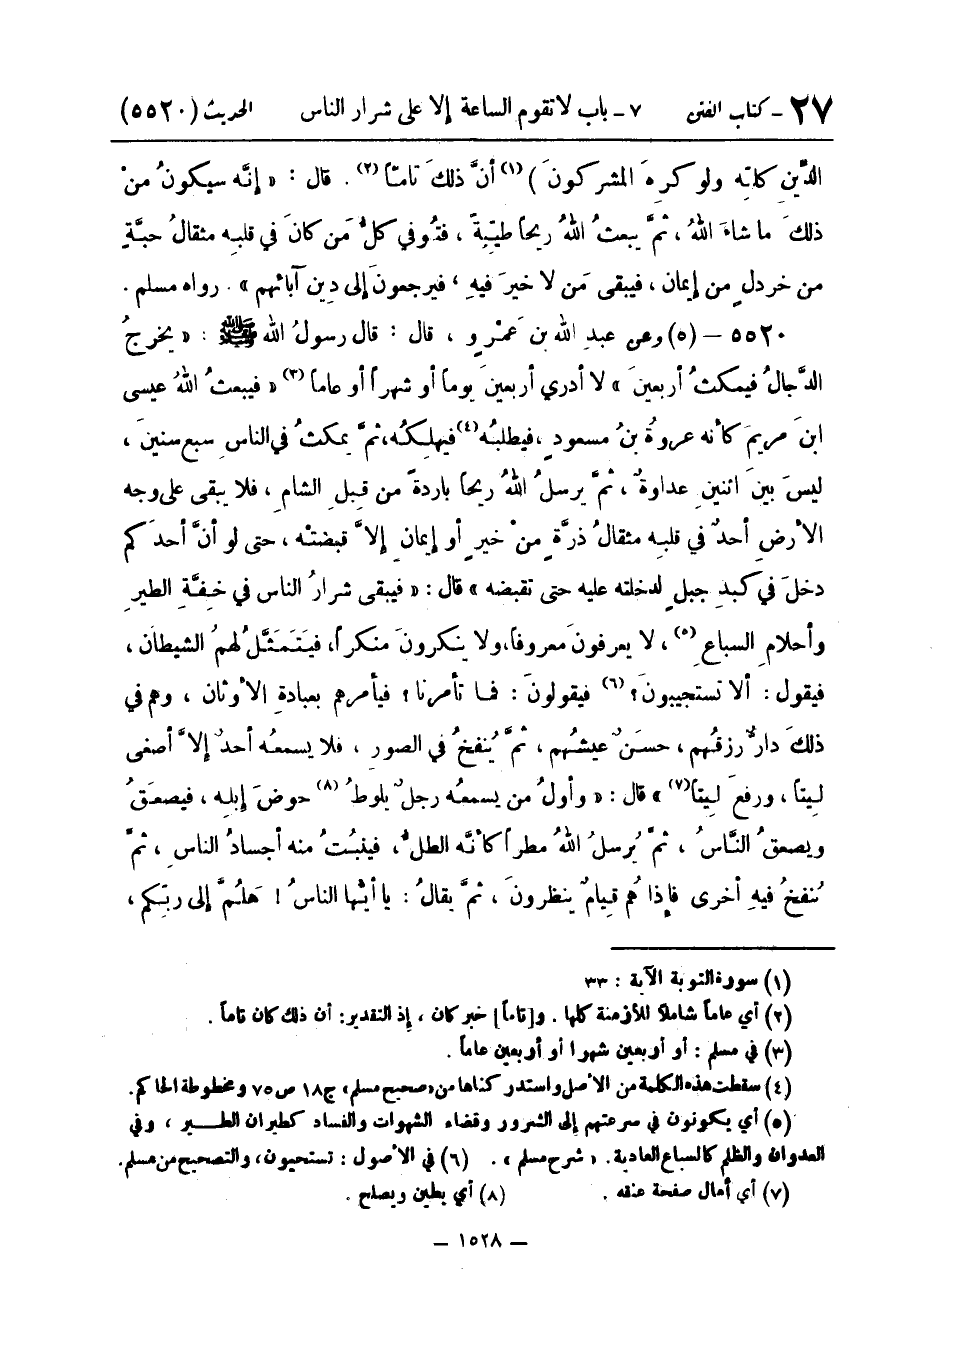 ٢٧ - كتاب الفتن ٧ - باب لا تقوم الساعة إلا على شرار الناس الحديث (٥٥٢٠)
الدِّينِ كلِّه ولو كرِهَ المشركونَ )(١) أنَّ ذلكَ تامّاً(٢) . قال : « إنَّه سيكونُ منْ
ذلكَ ما شاءَ اللهُ ، ثمَّ يبعثُ اللهُ ريحاً طيِّبةً ، فتُوفي كلُّ مَن كانَ في قلبِه مثقالُ حبَّةٍ
من خردلٍ من إيمانٍ ، فيبقى مَن لا خيرَ فيهِ ، فيرجعونَ إلى دِينِ آبائهم » . رواه مسلم .
٥٥٢٠ – (٥) وعن عبدِ الله بن عَمْرٍو ، قال : قال رسولُ الله ﷺ : « يخرجُ
الدَّجالُ فيمكثُ أربعينَ » لا أدري أربعينَ يوماً أو شهراً أو عاماً (٣) « فيبعثُ اللهُ عيسى
ابنَ مريمَ كأنه عروةُ بنُ مسعودٍ ،فيطلبُه(٤)فيهلِكُه،ثمَّ يمكثُ في الناسِ سبعَ سنينَ ،
ليسَ بينَ اثنينِ عداوةٌ ، ثمَّ يرسلُ اللهُ ريحاً باردةً من قِبلِ الشامِ ، فلا يبقى على وجه
الأرضِ أحدٌ في قلبِه مثقالُ ذرَّةٍ منْ خيرٍ أو إيمانٍ إلاَّ قبضتْه ، حتى لو أنَّ أحدَكم
دخلَ في كبدِ جبلٍ لدخلته عليه حتى تقبضه » قال : « فيبقى شرارُ الناس في خِفَّةِ الطيرِ
وأحلامِ السباعِ(٥) ، لا يعرفونَ معروفاً،ولا ينكرونَ منكراً، فيتَمَثَّلُ لهمُ الشيطان ،
فيقول : ألا تستجيبونَ ؟ (٦) فيقولونَ : فما تأمرنا ؟ فيأمرهم بعبادةِ الأوثان ، وهم في
ذلكَ دارٌّ رزقُهم ، حسَنٌ عيشُهم ، ثمَّ يُنفخُ في الصورِ ، فلا يسمعُه أحدٌ إلاَّ أصغى
لِيتاً ، ورفعَ لِيتاً(٧) » قال : « وأولُ من يسمعُه رجلٌ يلوطُ(٨) حوضَ إبلِه ، فيصعَقُ
ويصعقُ النَّاسُ ، ثمَّ يُرسلُ اللهُ مطراً كأنَّه الطلُّ ، فينبُتُ منه أجسادُ الناسِ ، ثمَّ
يُنفخُ فيهِ أخرى فإذا هُم قِيامٌ ينظرونَ ، ثمَّ يقالُ : يا أيُّها الناسُ ! هلُمَّ إلى ربِّكم ،
(١) سورة التوبة الآية : ٣٣
(٢) أي عاماً شاملاً للأزمنة كلها . و[تاماً] خبر كان ، إذ التقدير: أن ذلك كان تاماً .
(٣) في مسلم : أو أربعين شهرا أو أربعين عاماً .
(٤) سقطت هذه الكلمة من الأصل واستدركناها من«صحيح مسلم» ج١٨ ص٧٥ ومخطوطة الحاكم.
(٥) أي يكونون في سرعتهم إلى الشرور وقضاء الشهوات والفساد كطيران الطير ، وفي
العدوان والظلم كالسباع العادية . « شرح مسلم » . (٦) في الأصول : تستحيون، والتصحيح من مسلم.
(٧) أي أمال صفحة عنقه . (٨) أي يطين ويصلح .
– ١٥٢٨ –